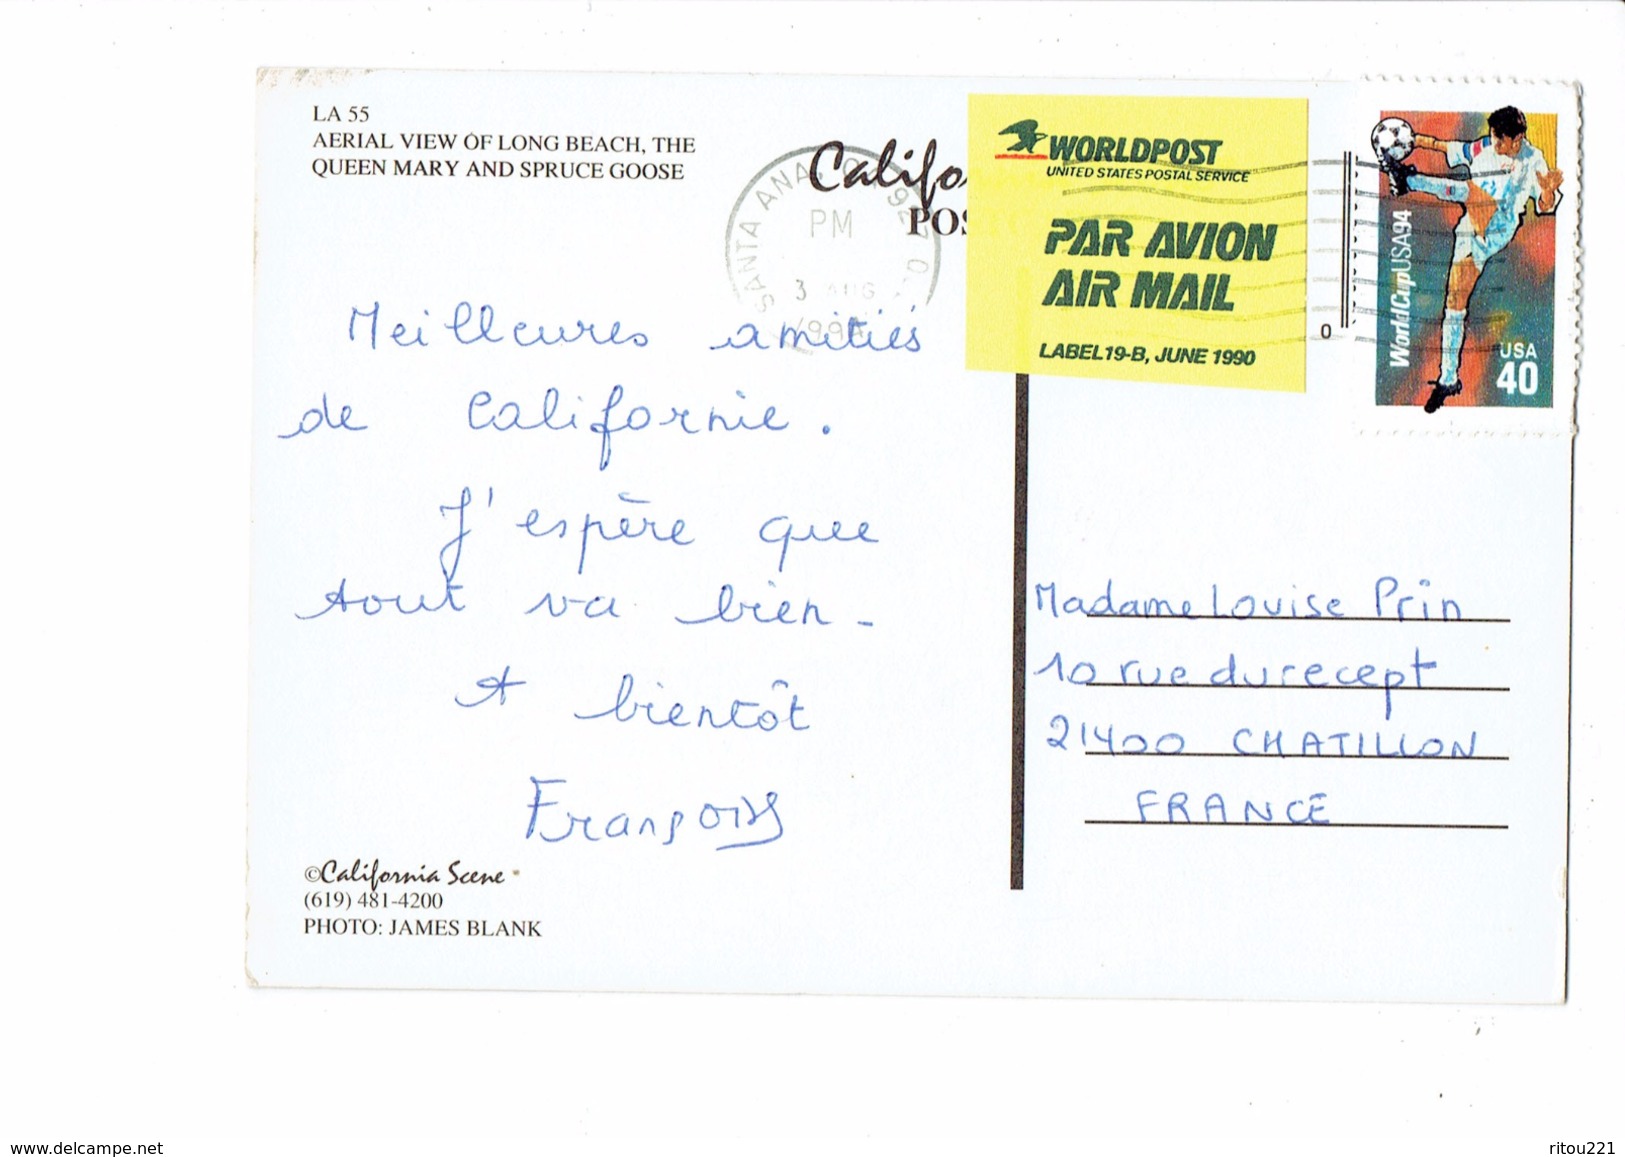 LA 55
AERIAL VIEW OF LONG BEACH, THE
QUEEN MARY AND SPRUCE GOOSE
Califo
POS
SANTA ANA, CA 92
PM
3 AUG
1994
WORLDPOST
UNITED STATES POSTAL SERVICE
PAR AVION
AIR MAIL
LABEL 19-B, JUNE 1990
0
WorldCupUSA94
USA
40
Meilleures amitiés
de Californie.
J'espère que
tout va bien -
A bientôt
François
Madame Louise Prin
10 rue du recept
21400 CHATILLON
FRANCE
©California Scene
(619) 481-4200
PHOTO: JAMES BLANK
www.delcampe.net
ritou221